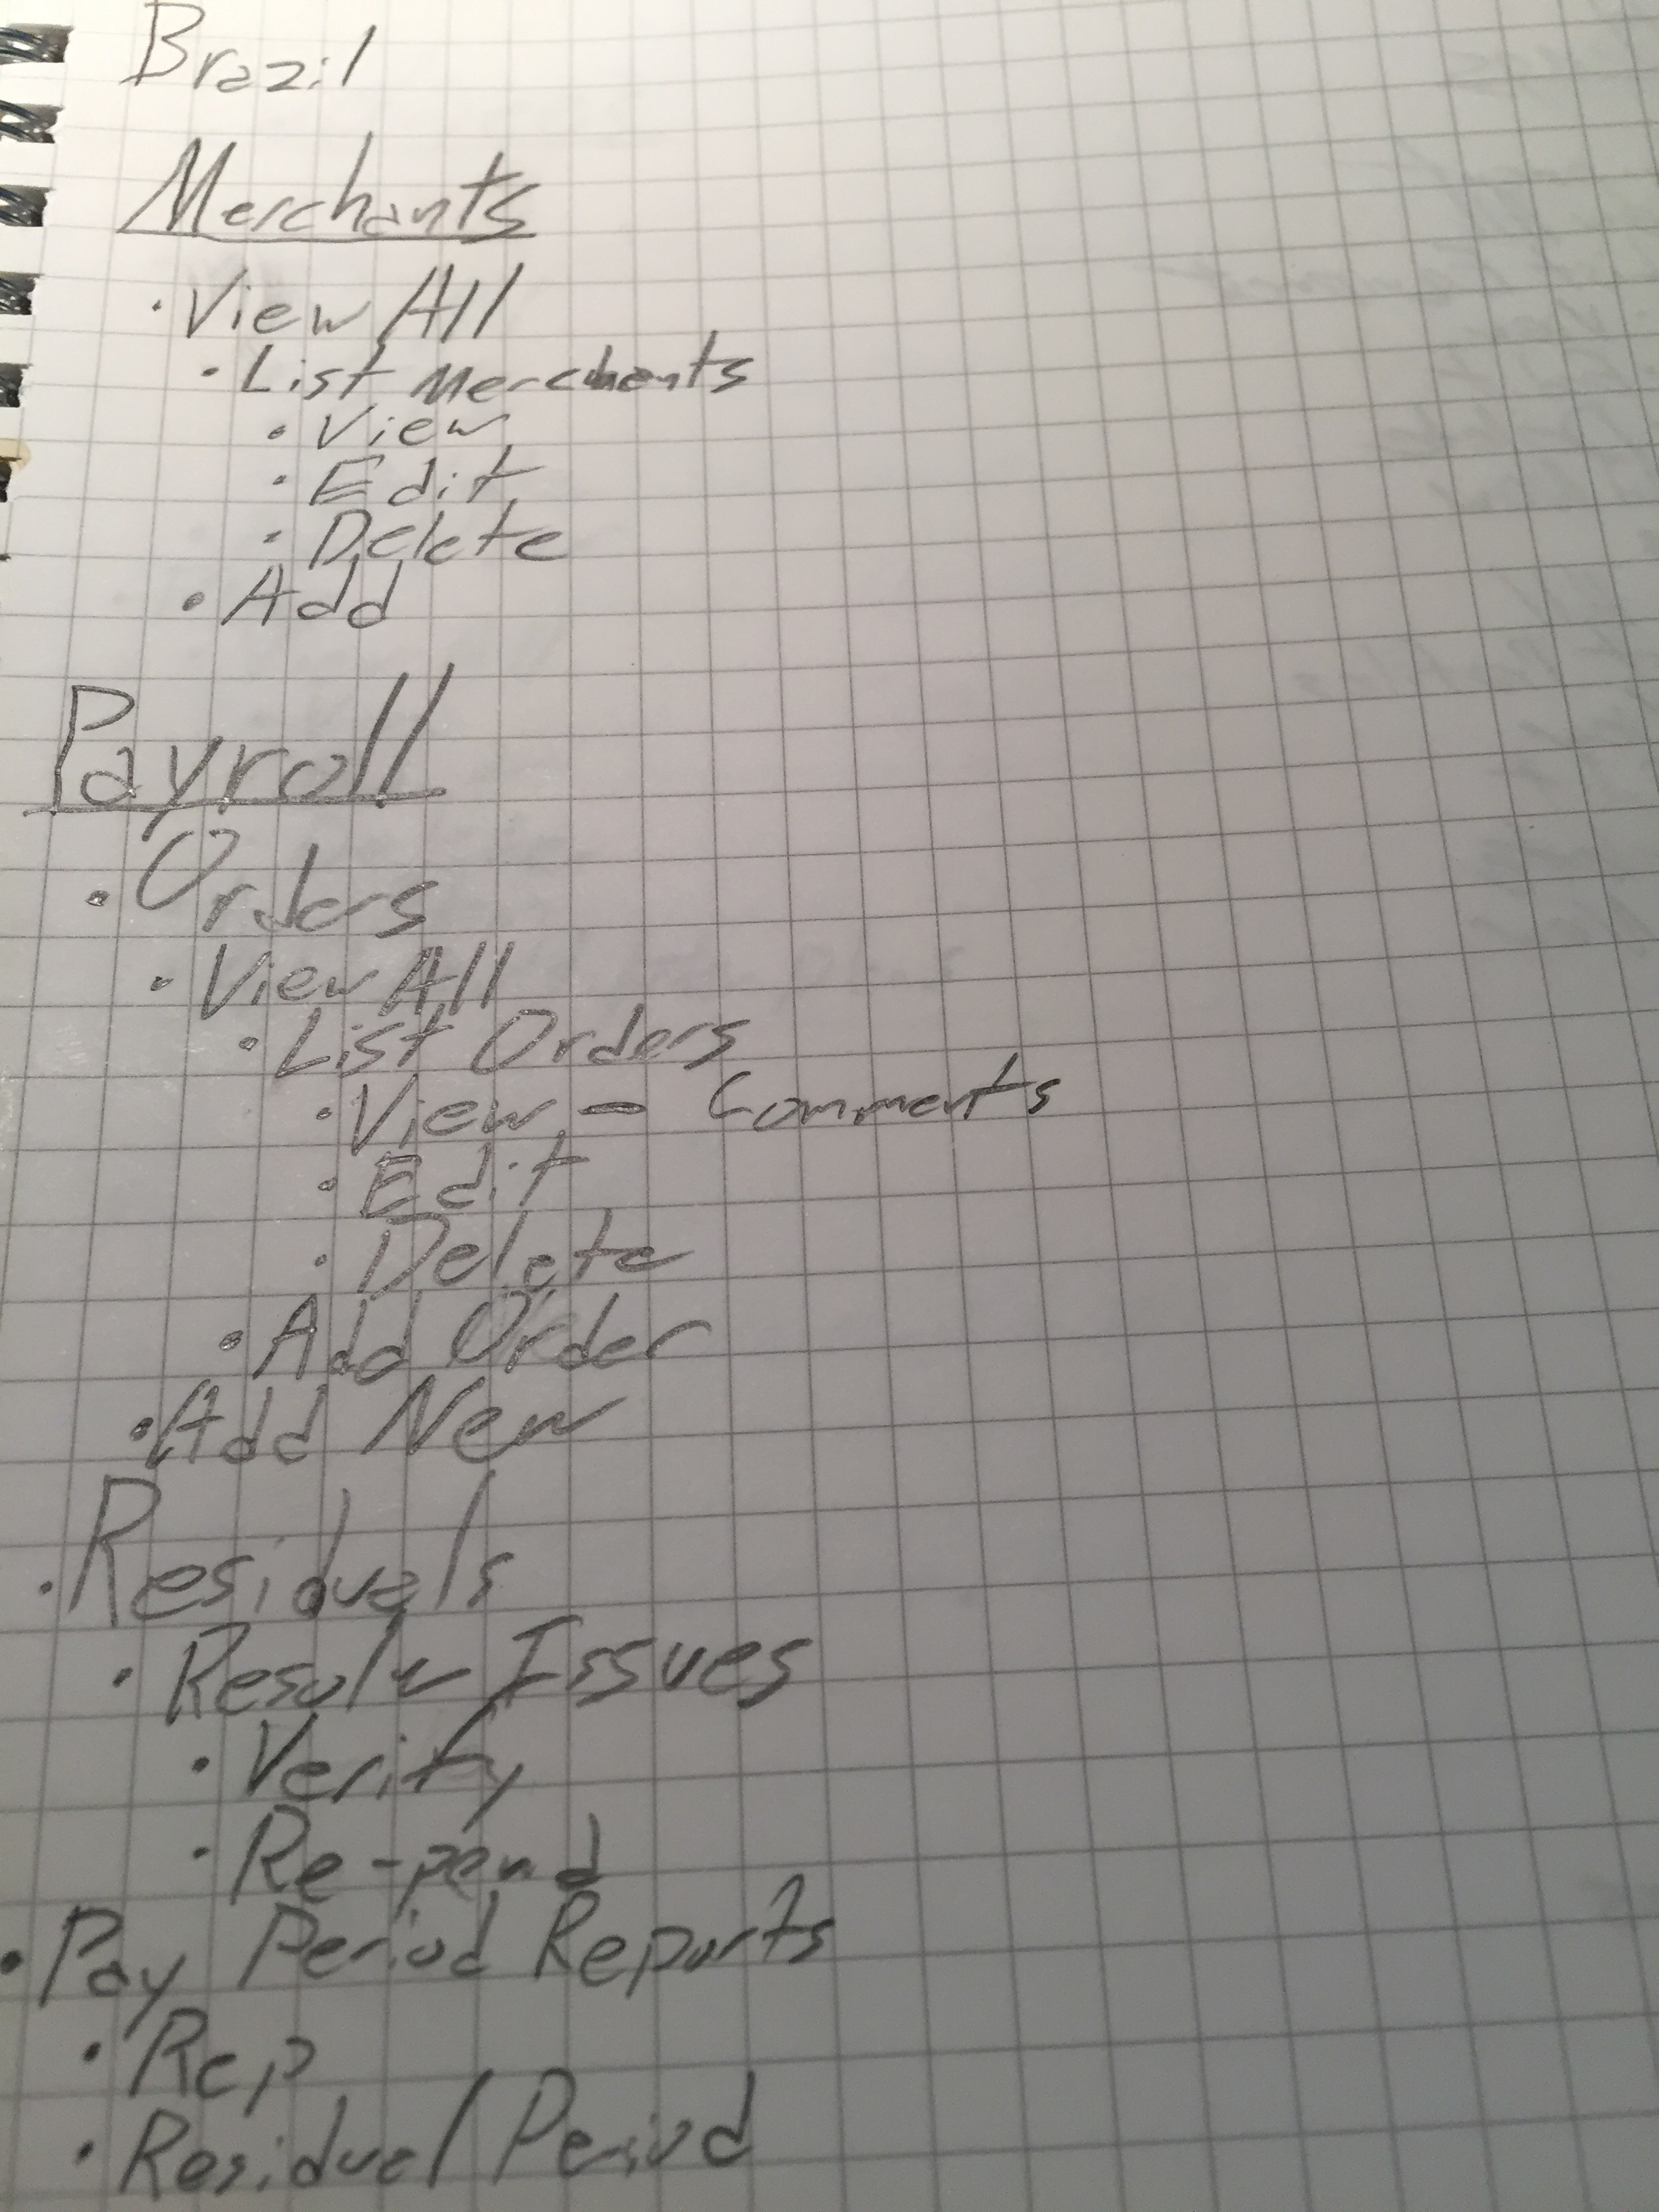 Brazil
Merchants
· View All
· List Merchants
· View
· Edit
· Delete
· Add
Payroll
· Orders
· View All
· List Orders
· View - Comments
· Edit
· Delete
· Add Order
· Add New
· Residuals
· Resolv Issues
· Verify
· Re-pend
· Pay Period Reports
· Rep
· Residual Period